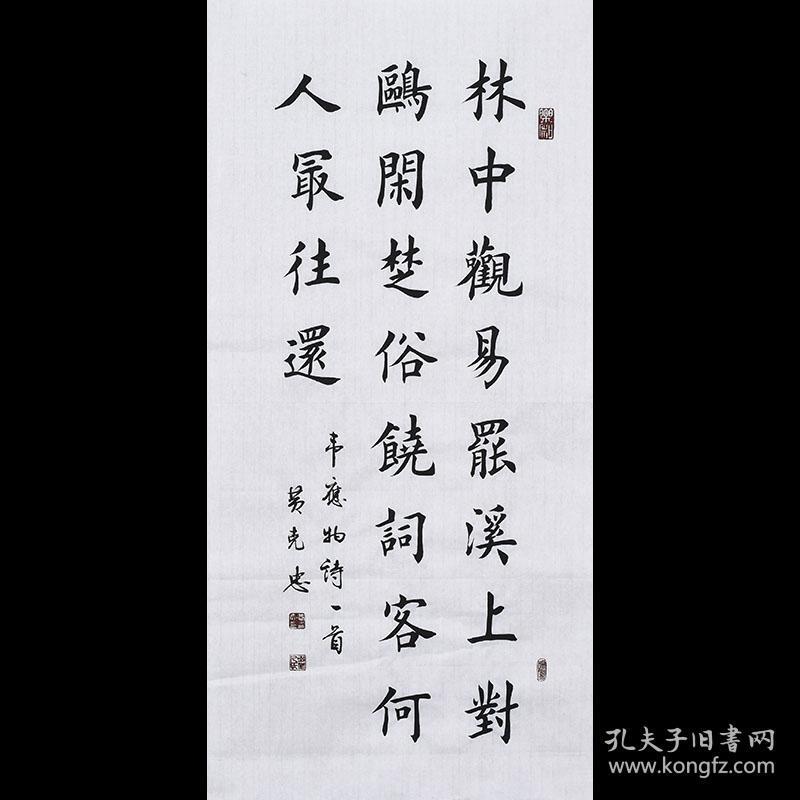 林中觀易罷溪上對
鷗閑楚俗饒詞客何
人冣往還
韦應物诗一首
黄克忠
孔夫子旧书网
www.kongfz.com